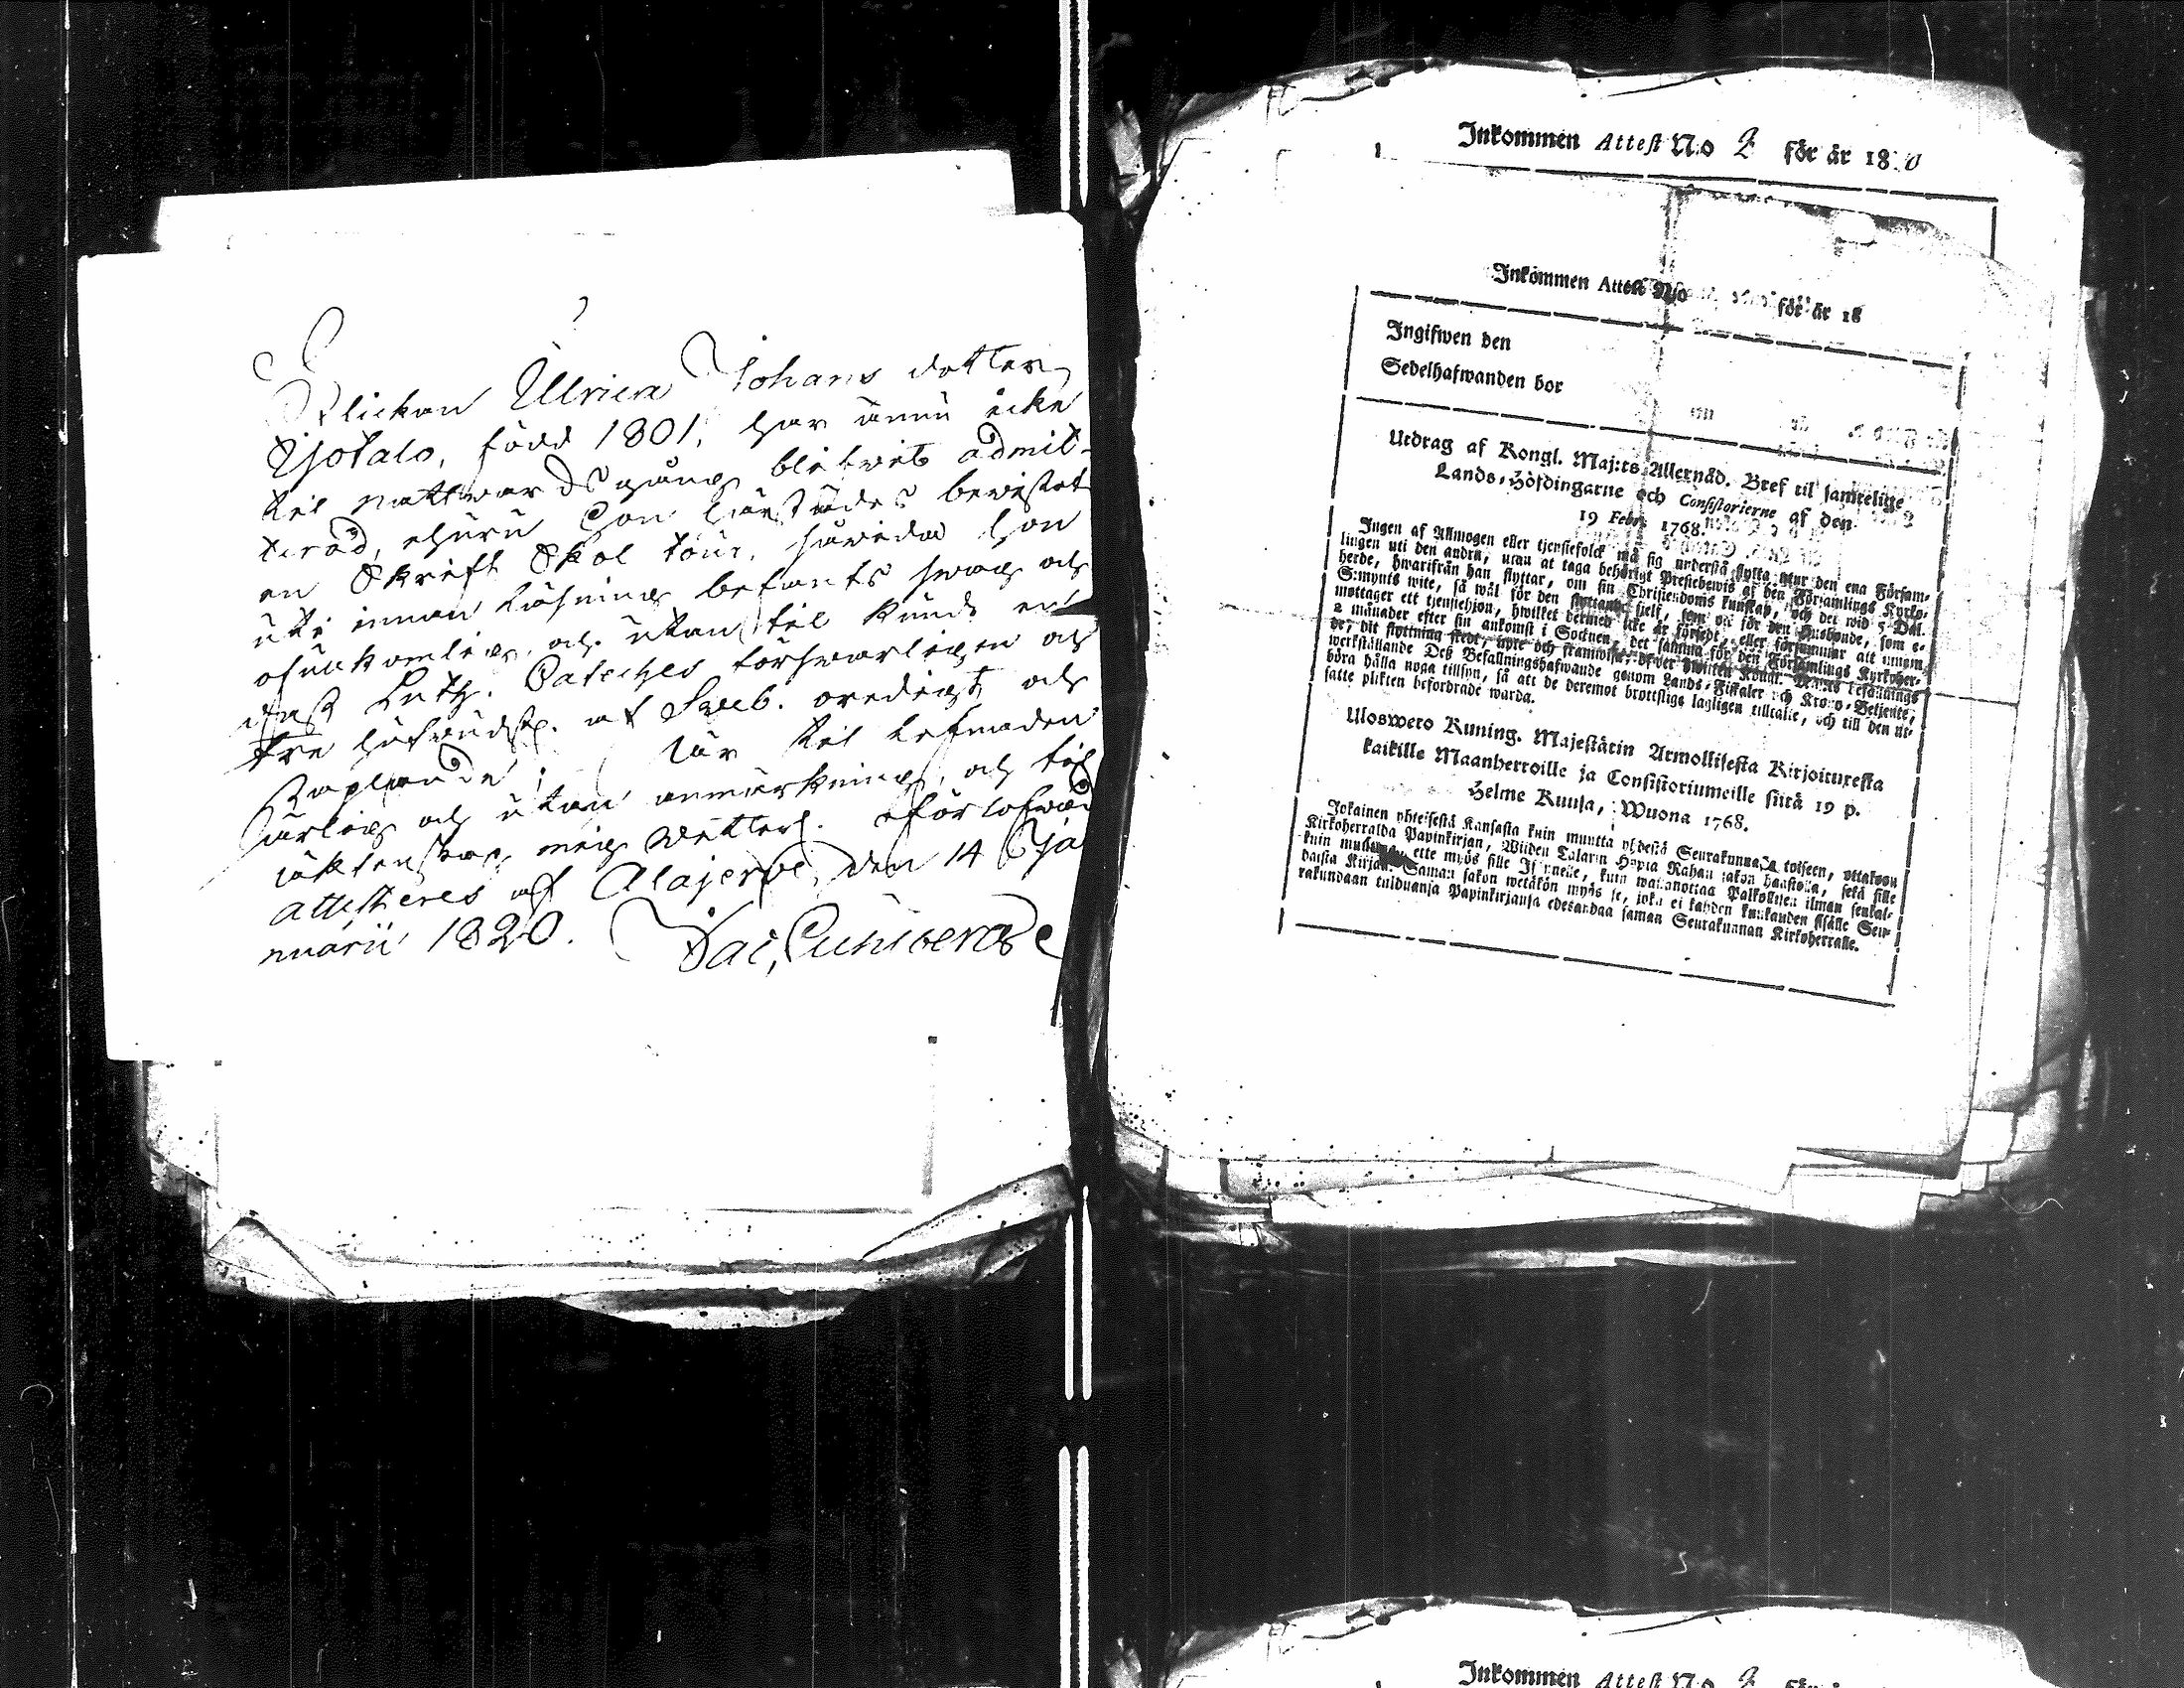 Flickan Ulrica Johans dotter
Ojotalo, född 1801, har ännu icke
til nattwardsgång blifwit admit-
terad, ehuru hon härstädes bewistat
en Skrift Skol tour, såwida hon
uti innan läsning befants swag och
ofullkomlig, och utan til kunde en-
dast Luth. Cateches försvarligen och
tre hufwudst. af Sveb. oredigt och
staplande; är til lefnaden
ärlig och utan anmärkning, och til
äktenskap, mig vetterl. oförlofwad
attesteres af Alajerwi, den 14 Ja-
nuarii 1820.
Inkommen Attest No 2 för år 18 0
Inkommen Attest No för år 18
Ingifwen den
Sedelhafwanden bor
Utdrag af Kongl. Maj:ts Allernåd. Bref til samtelige
Lands-Höfdingarne och Consistorierne af den
19 Febr. 1768.
Ingen af Allmogen eller tjenstefolck må sig understå flytta utur den ena Försam-
lingen uti den andra, utan at taga behörigt Prestebewis af den Församlings Kyrko-
herde, hwarifrån han flyttar, om sin Christendoms kunskap, och det wid 5 Dal.
S:mynts wite, så wäl för den flyttande sjelf, som ock för den Husbonde, som e-
mottager ett tjenstehjon, hwilket dermed icke är försedt, eller försummar att innom
2 månader efter sin ankomst i Socknen, det samma för den Församlings Kyrkoher-
de, dit flyttning skedt, upte och framwisa;
werkställande Deß Befallningshafwande genom Lands-Fiskaler och Krono-Betjente,
böra hålla noga tillsyn, så att de deremot brottslige lagligen tilltalte, och till den ut-
satte plikten befordrade warda.
Uloswero Kuning. Majestätin Armollisesta Kirjoituxesta
kaikille Maanherroille ja Consistoriumeille siitä 19 p.
Helme Kuusa, Wuona 1768.
Jokainen yhteisestä Kansasta kuin muutta yhdestä Seurakunnasta toiseen, ottakoon
Kirkoherralda Papinkirjan, Wiiden Talarin Hopia Rahan sakon haastolla, sekä sille
kuin muuttaa, ette myös sille Isännelle, kuin wastanottaa Palkollisen ilman senkal-
daista Kirjaa. Saman sakon wetäkön myös se, joka ei kahden kuukauden sisälle Seu-
rakundaan tulduansa Papinkirjansa edesandaa saman Seurakunnan Kirkoherralle.
Inkommen Attest No 2